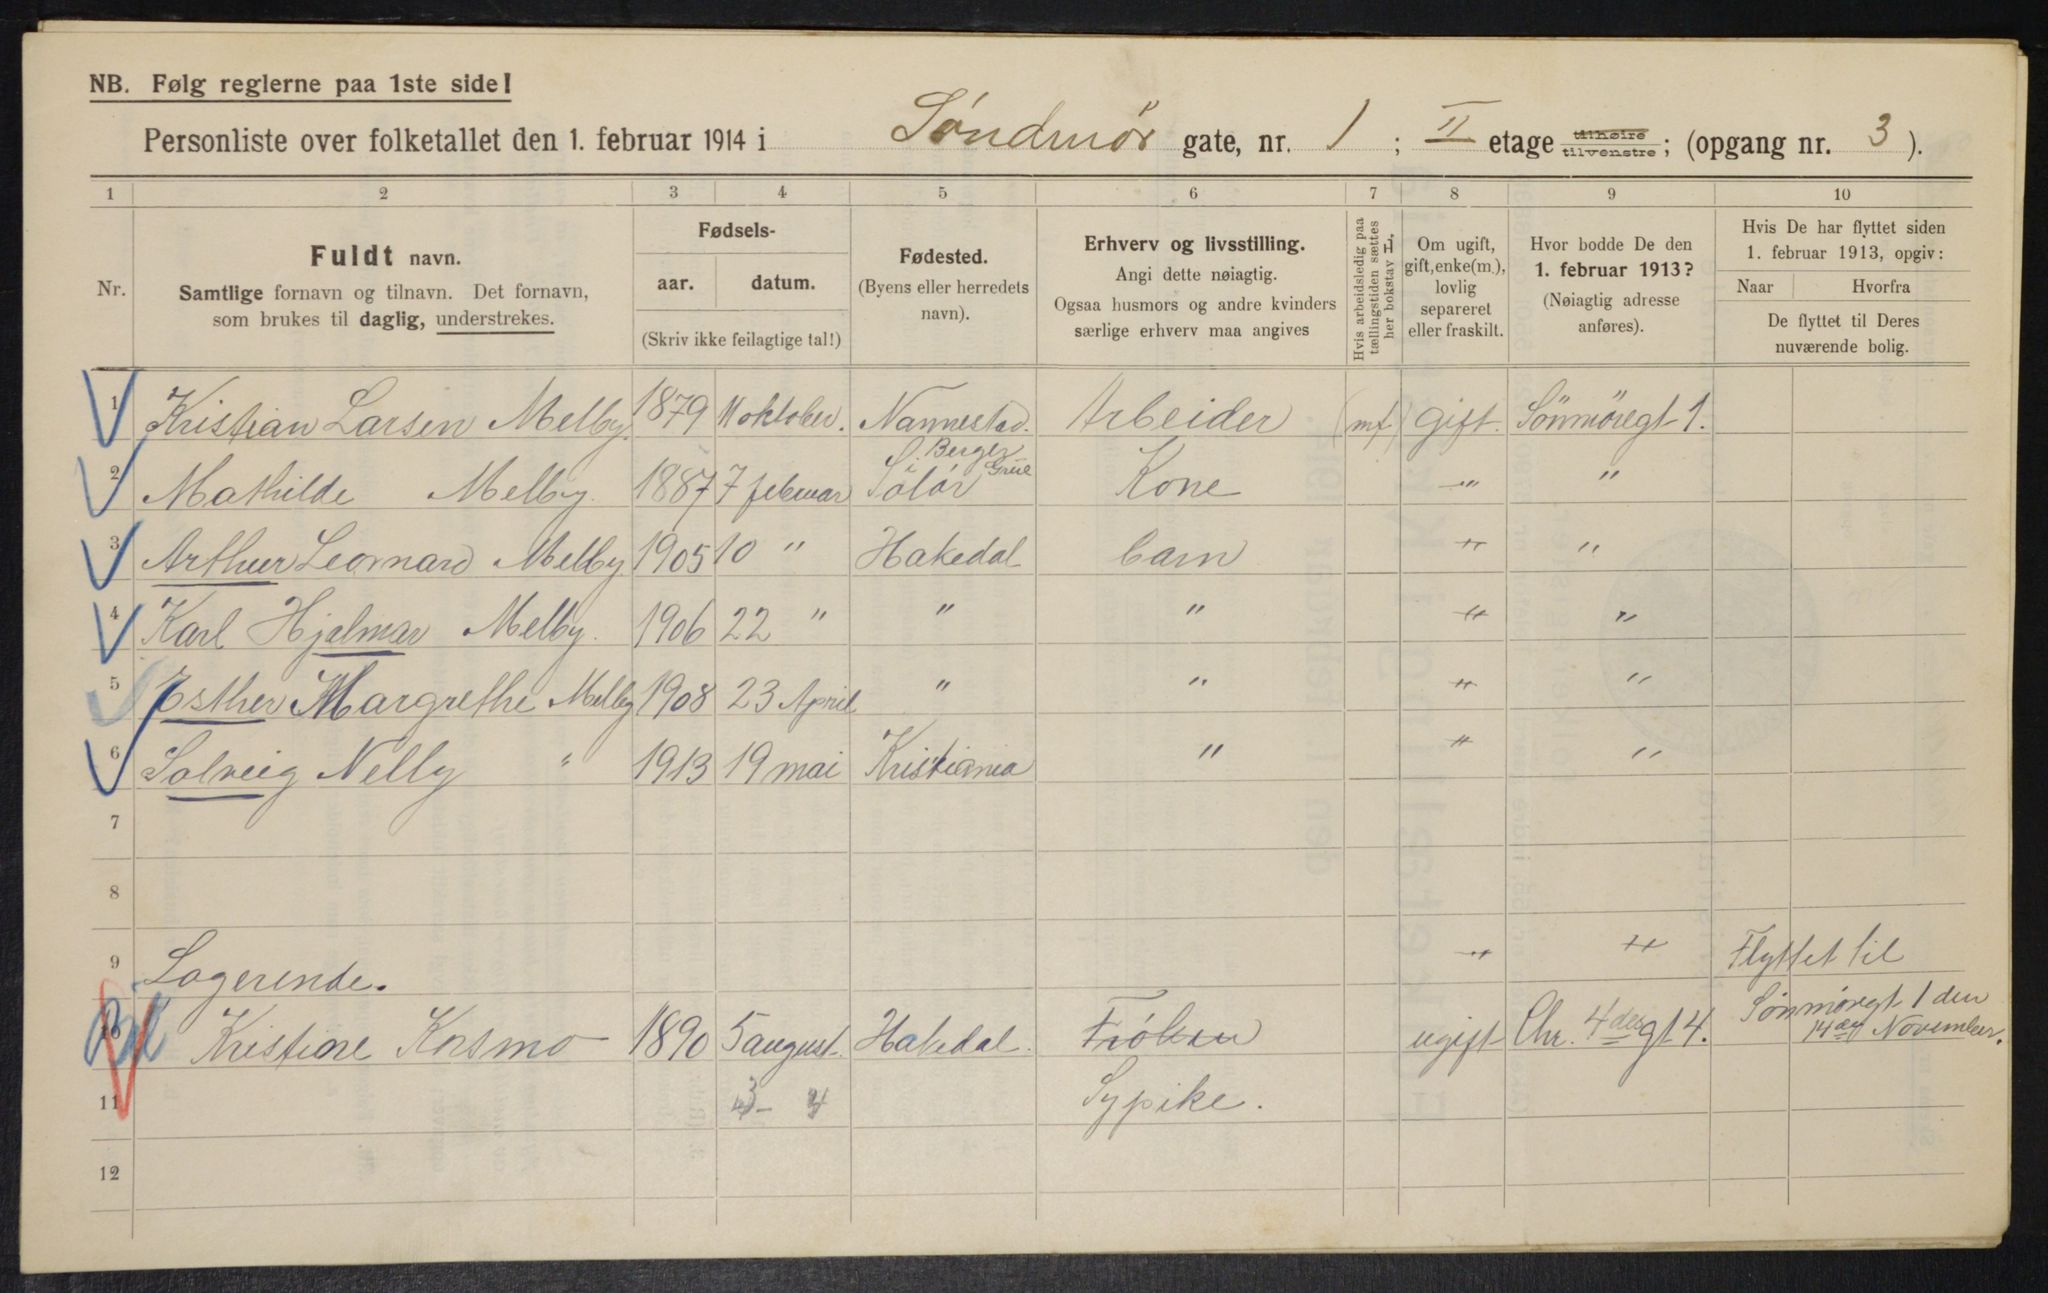 NB. Følg reglerne paa 1ste side!
Personliste over folketallet den 1. februar 1914 i Söndmör gate, nr. 1 ; II etage tilhøire tilvenstre ; (opgang nr. 3 ).
1 2 3 4 5 6 7 8 9 10
Nr.
Fuldt navn.
Samtlige fornavn og tilnavn. Det fornavn,
som brukes til daglig, understrekes.
Fødsels-
aar. datum.
(Skriv ikke feilagtige tal!)
Fødested.
(Byens eller herredets
navn).
Erhverv og livsstilling.
Angi dette nøiagtig.
Ogsaa husmors og andre kvinders
særlige erhverv maa angives
Hvis arbeidsledig paa
tællingstiden sættes
her bokstav L.
Om ugift,
gift, enke(m.),
lovlig
separeret
eller fraskilt.
Hvor bodde De den
1. februar 1913?
(Nøiagtig adresse
anføres).
Hvis De har flyttet siden
1. februar 1913, opgiv:
Naar Hvorfra
De flyttet til Deres
nuværende bolig.
1 Kristian Larsen Melby. 1879 11 oktober. Nannestad. Arbeider (mf) gift. Sönmöregt 1.
Berger
Grue
2 Mathilde Melby. 1887 7 februar Solör Kone " "
3 Arthur Leonnard Melby 1905 10 " Hakedal barn " "
4 Karl Hjalmar Melby. 1906 22 " " " " "
5 Esther Margrethe Melby 1908 23 April " " " "
6 Solveig Nelly " 1913 19 mai Kristiania " " "
7
8
9 Logerende. " " Flyttet til
Sönmöregt 1 den
10 Kristine Kosmo 1890 5 august. Hakedal. Fröken ugift Chr. 4des gt 4. 14de November.
11 Sypike.
12